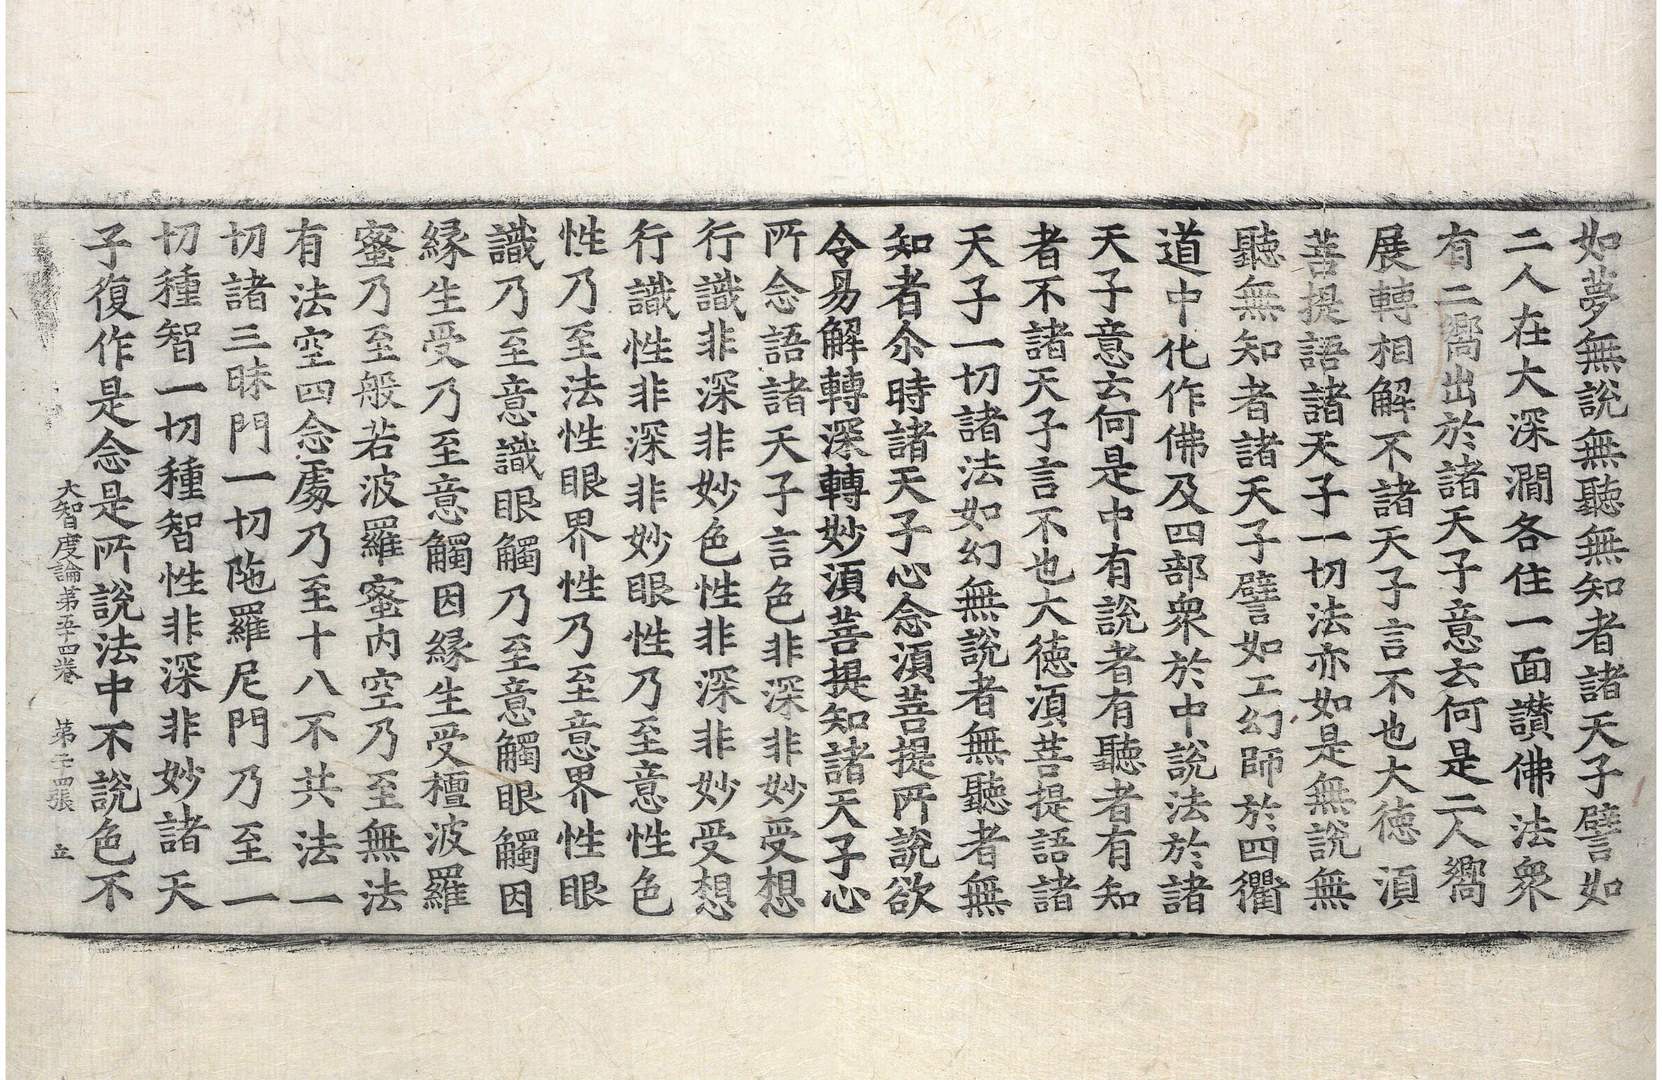 如夢無說無聽無知者諸天子譬如
二人在大深澗各住一面讃佛法衆
有二嚮出於諸天子意云何是二人嚮
展轉相解不諸天子言不也大德湏
菩提語諸天子一切法亦如是無說無
聽無知者諸天子譬如工幻師於四衢
道中化作佛及四部衆於中說法於諸
天子意云何是中有說者有聽者有知
者不諸天子言不也大德湏菩提語諸
天子一切諸法如幻無說者無聽者無
知者尒時諸天子心念湏菩提所說欲
令易解轉深轉妙湏菩提知諸天子心
所念語諸天子言色非深非妙受想
行識非深非妙色性非深非妙受想
行識性非深非妙眼性乃至意性色
性乃至法性眼界性乃至意界性眼
識乃至意識眼觸乃至意觸眼觸因
縁生受乃至意觸因縁生受檀波羅
蜜乃至般若波羅蜜内空乃至無法
有法空四念處乃至十八不共法一
切諸三昧門一切陁羅尼門乃至一
切種智一切種智性非深非妙諸天
子復作是念是所說法中不說色不
大智度論第五十四卷 第十四張 立